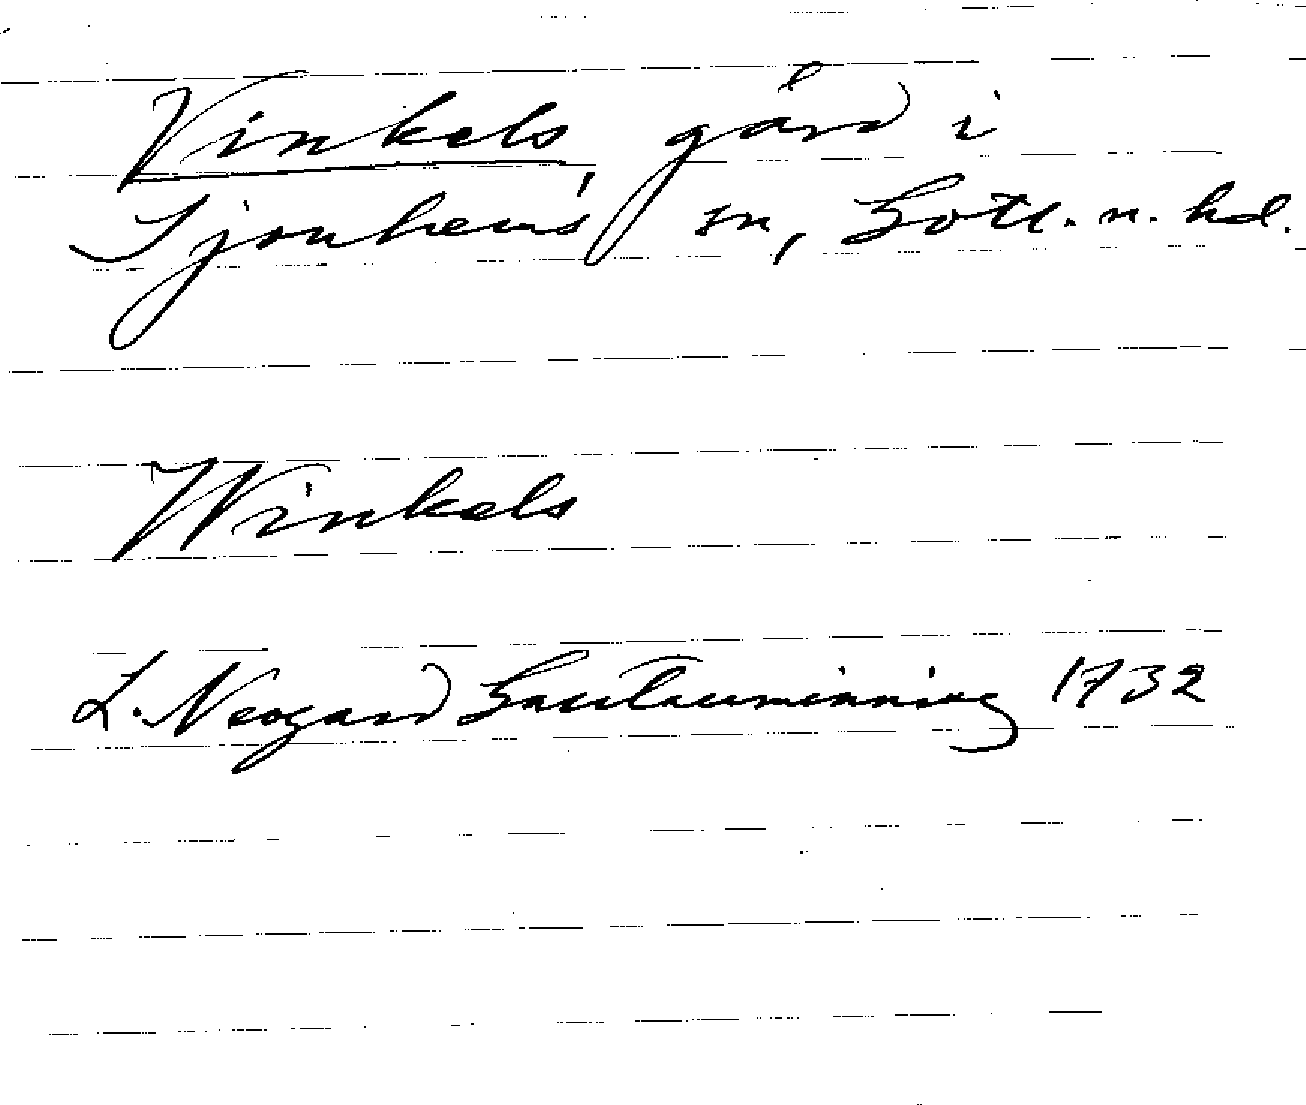 Vinkels, gård i
Sjonhems sn, Gotl. n. hd.
Winkels
L. Neogard Gautauminning 1732